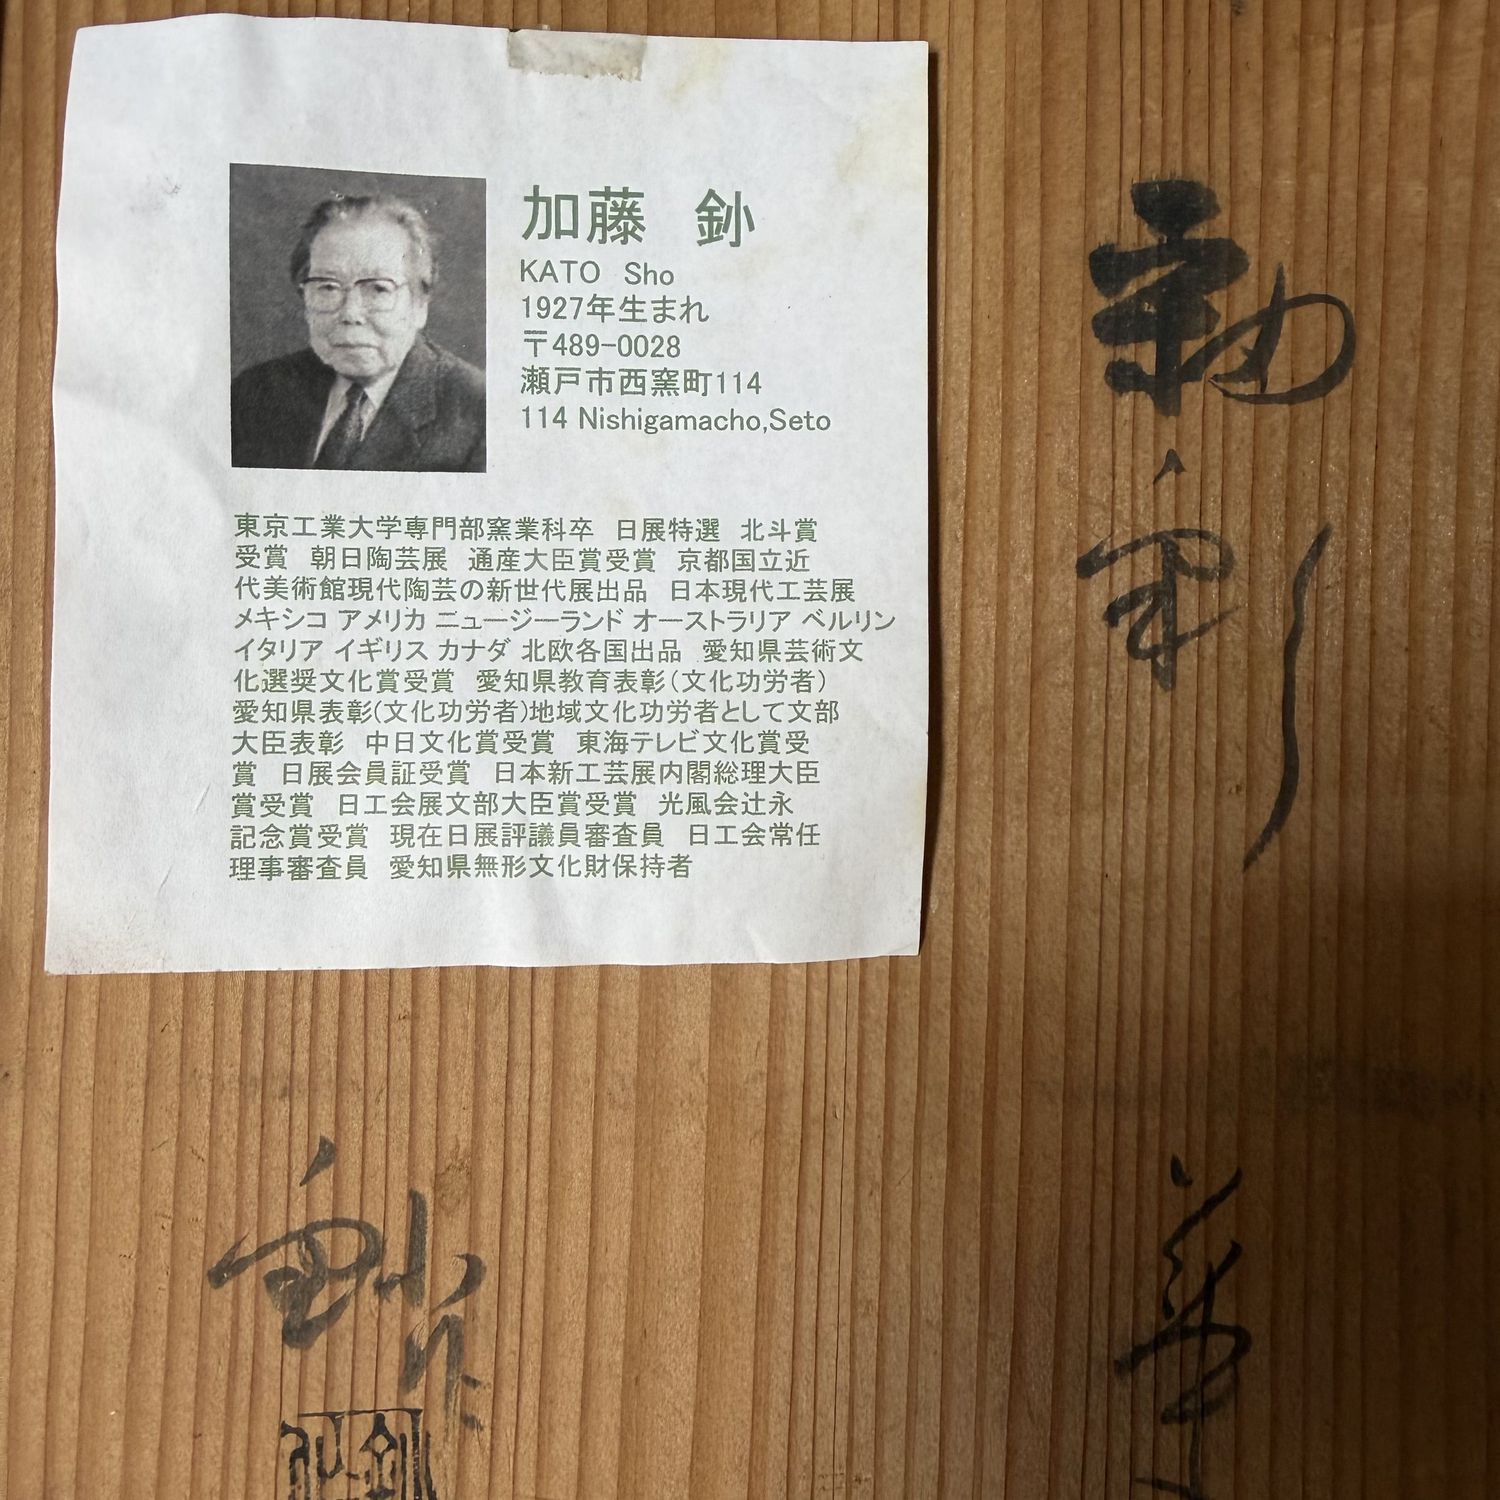 加藤 鈔
KATO Sho
1927年生まれ
〒489-0028
瀬戸市西窯町114
114 Nishigamacho,Seto
東京工業大学専門部窯業科卒 日展特選 北斗賞
受賞 朝日陶芸展 通産大臣賞受賞 京都国立近
代美術館現代陶芸の新世代展出品 日本現代工芸展
メキシコ アメリカ ニュージーランド オーストラリア ベルリン
イタリア イギリス カナダ 北欧各国出品 愛知県芸術文
化選奨文化賞受賞 愛知県教育表彰(文化功労者)
愛知県表彰(文化功労者)地域文化功労者として文部
大臣表彰 中日文化賞受賞 東海テレビ文化賞受
賞 日展会員証受賞 日本新工芸展内閣総理大臣
賞受賞 日工会展文部大臣賞受賞 光風会辻永
記念賞受賞 現在日展評議員審査員 日工会常任
理事審査員 愛知県無形文化財保持者
彩
鈔作